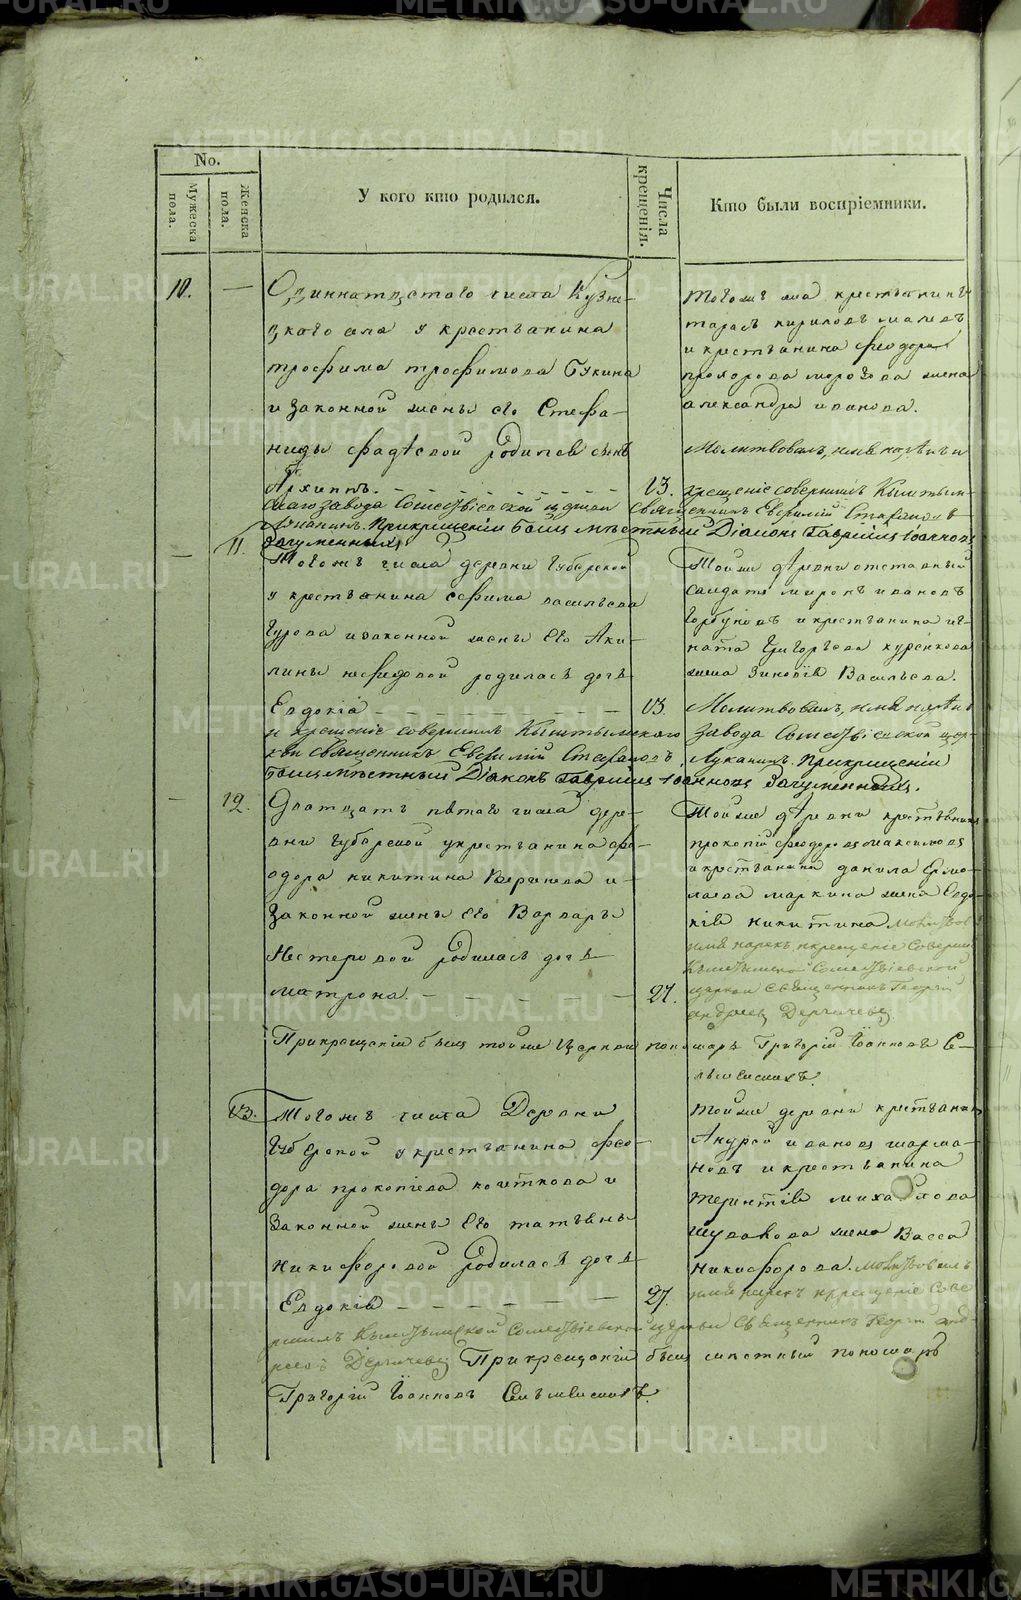 METRIKI.GASO-URAL.RU
No.
Мужеска пола.
Женска пола.
У кого кто родился.
Числа крещенія.
Кто были воспріемники.
10.
Одиннатцатого числа Кузне-
цкого села у крестьянина
трофима трофимова Букина
и законной жены его Стефа-
ниды фадѣевой родился сынъ
Архиппъ.
13.
крестьянинъ
тарасъ кириловъ
и крестьянина феодора
прохорова морозова жена
александра иванова.
Молитвовалъ, имя нарѣкъ и
крещеніе совершилъ Кыштым-
скаго завода Сошествіевской церкви священникъ Евфимій Стефановъ
Луканинъ. Прикрещеніи былъ мѣстный Діаконъ Гавріилъ Іоанновъ
Загуменныхъ
11.
Тогожъ числа деревни Губерской
у крестьянина ефима васильева
Гурова и законной жены его Аки-
лины нефедовой родилась дочь
Евдокіа
13.
Тойже дѣревни отставный
салдатъ миронъ ивановъ
Горбуновъ и крестьянина иг-
ната Григорьева куренкова
жена Зиновія Васильева.
Молитвовалъ, имя нарѣкъ
и крещеніе совершилъ Кыштымскаго завода Сошествіевской цер-
кви священникъ Евфимій Стефановъ Луканинъ. Прикрещеніи
былъ мѣстный Діаконъ Гавріилъ Іоанновъ Загуменныхъ.
12.
Дватцать пятого числа дере-
вни Губерской у крестьянина фе-
одора никитина и
законной жены его Варвары
Нестеровой родилась дочь
матрона
27.
Тойже дѣревни крестьянинъ
прокопій феодоровъ максимовъ
и крестьянина данила Ермо-
лаева маркина жена Евдо-
кія никитина молитвов
имя нарекъ и крещеніе соверши
Кыштымской Сошествіевской
церкви Священникъ Георгій
андреевъ Дергачевъ
Прикрещеніи былъ тойже церкви пономарь Григорій Іоанновъ Се-
13.
Тогожъ числа Деревни
Губерской у крестьянина фео-
дора прокопіева кочткова и
законной жены его татьяны
никифоровой родилась дочь
Евдокія
27.
тойже деревни крестьянинъ
Андрей ивановъ шарма-
новъ и крестьянина
терентія михайлова
жена Васса
Никифорова. молитвовалъ
имя нарекъ и крещеніе сове-
ршилъ Кыштымской Сошествіевской церкви Священникъ Георгій анд-
реевъ Дергачевъ Прикрещеніи былъ мѣстный пономарь
Григорій Іоанновъ